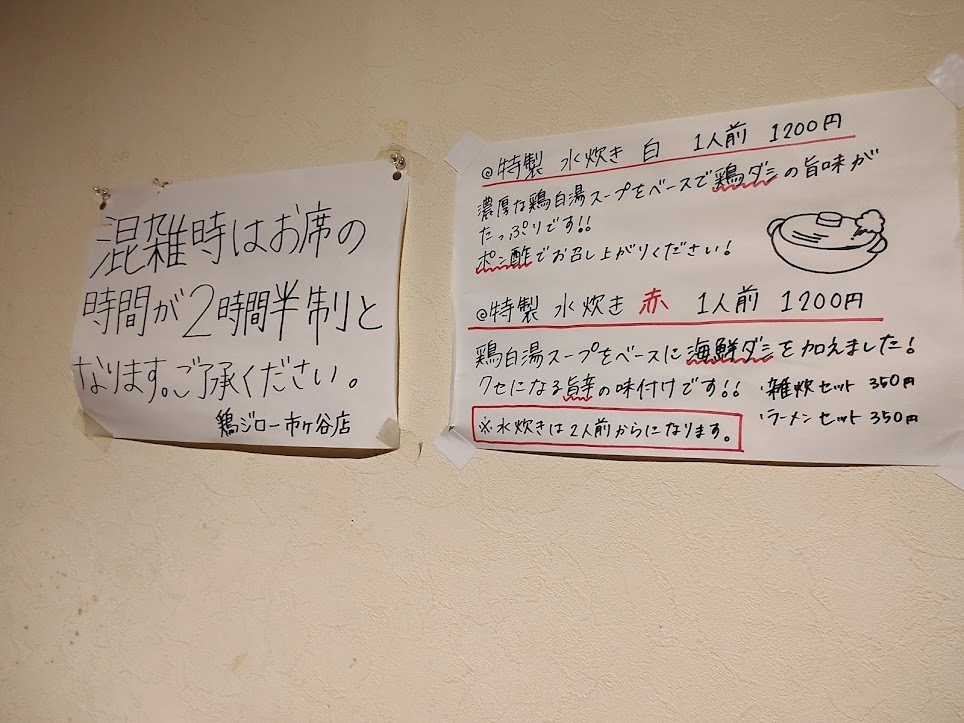 混雑時はお席の
時間が2時間半制と
なります。ご了承ください。
鶏ジロー市ヶ谷店
◎特製 水炊き 白 1人前 1200円
濃厚な鶏白湯スープをベースで鶏ダシの旨味が
たっぷりです!!
ポン酢でお召し上がりください!
◎特製 水炊き 赤 1人前 1200円
鶏白湯スープをベースに海鮮ダシを加えました!
クセになる旨辛の味付けです!!
・雑炊セット 350円
・ラーメンセット 350円
※水炊きは2人前からになります。